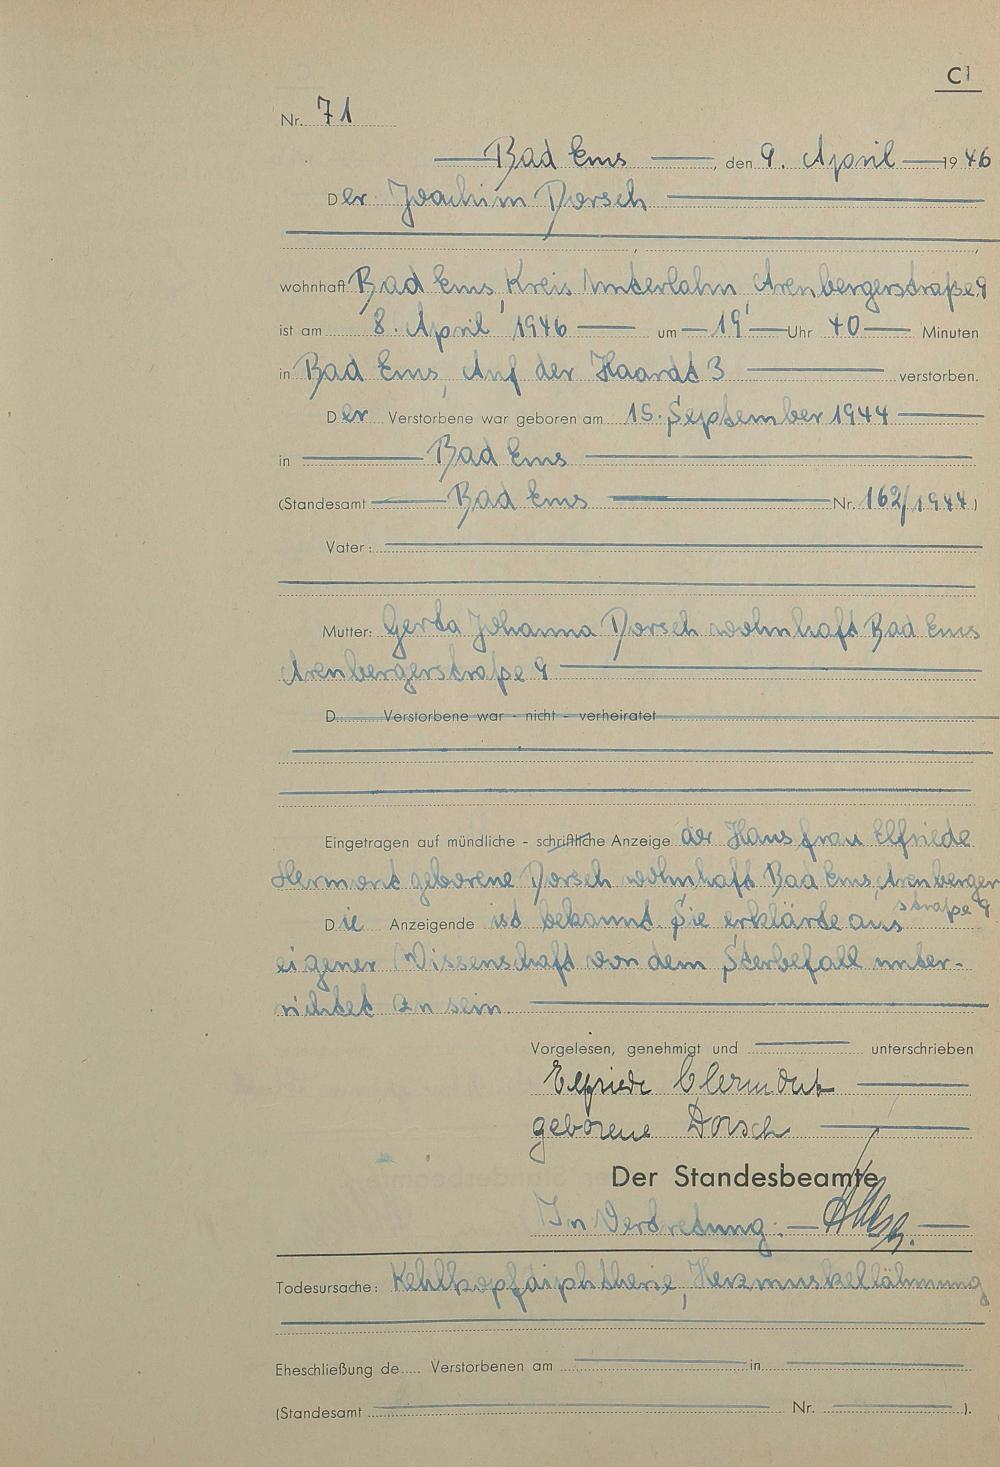 C1
Nr. 71
Bad Ems, den 9. April 1946
Der Joachim Dorsch
wohnhaft Bad Ems, Kreis Unterlahn, Arenbergerstraße 9
ist am 8. April 1946 um 19 Uhr 40 Minuten
in Bad Ems, Auf der Haardt 3 verstorben.
Der Verstorbene war geboren am 15. September 1944
in Bad Ems
(Standesamt Bad Ems Nr. 162/1944)
Vater:
Mutter: Gerda Johanna Dorsch wohnhaft Bad Ems
Arenbergerstraße 9
D Verstorbene war - nicht - verheiratet
Eingetragen auf mündliche - schriftliche Anzeige der Hausfrau Elfriede
Clermont geborene Dorsch wohnhaft Bad Ems, Arenberger
straße 9
Die Anzeigende ist bekannt. Sie erklärte aus
eigener Wissenschaft von dem Sterbefall unter-
richtet zu sein.
Vorgelesen, genehmigt und unterschrieben
Elfriede Clermont
geborene Dorsch
Der Standesbeamte
In Vertretung:
Todesursache: Kehlkopfdiphtherie, Herzmuskellähmung
Eheschließung de Verstorbenen am in
(Standesamt Nr. ).